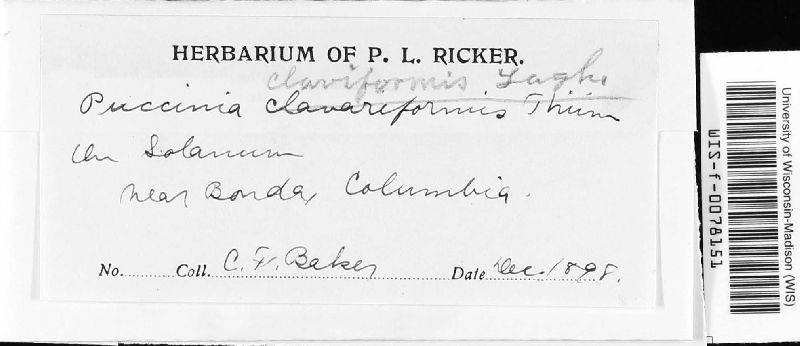 HERBARIUM OF P. L. RICKER.
claviformis Lagh.
Puccinia clavariformis Thüm
On Solanum
near Bonda, Columbia.
No. Coll. C. F. Baker Date Dec. 1898.
University of Wisconsin-Madison (WIS)
WIS-f-0078151